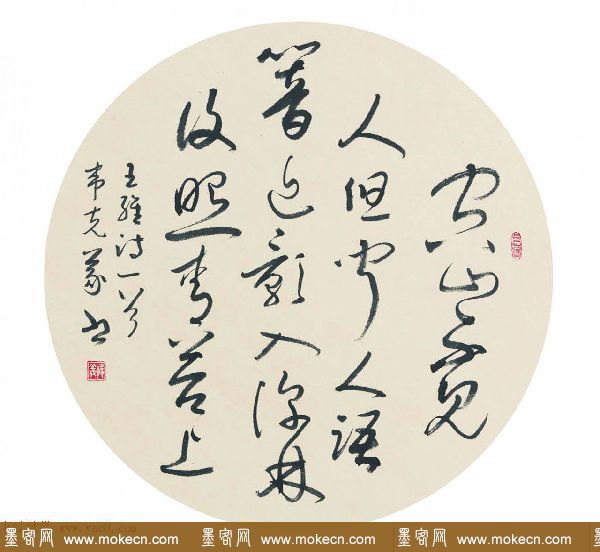 空山不见
人但闻人语
響返影入深林
復照青苔上
王維诗一首
韦克義书
www.yac8.com
墨客网 www.mokecn.com 墨客网 www.mokecn.com 墨客网 www.mokecn.com